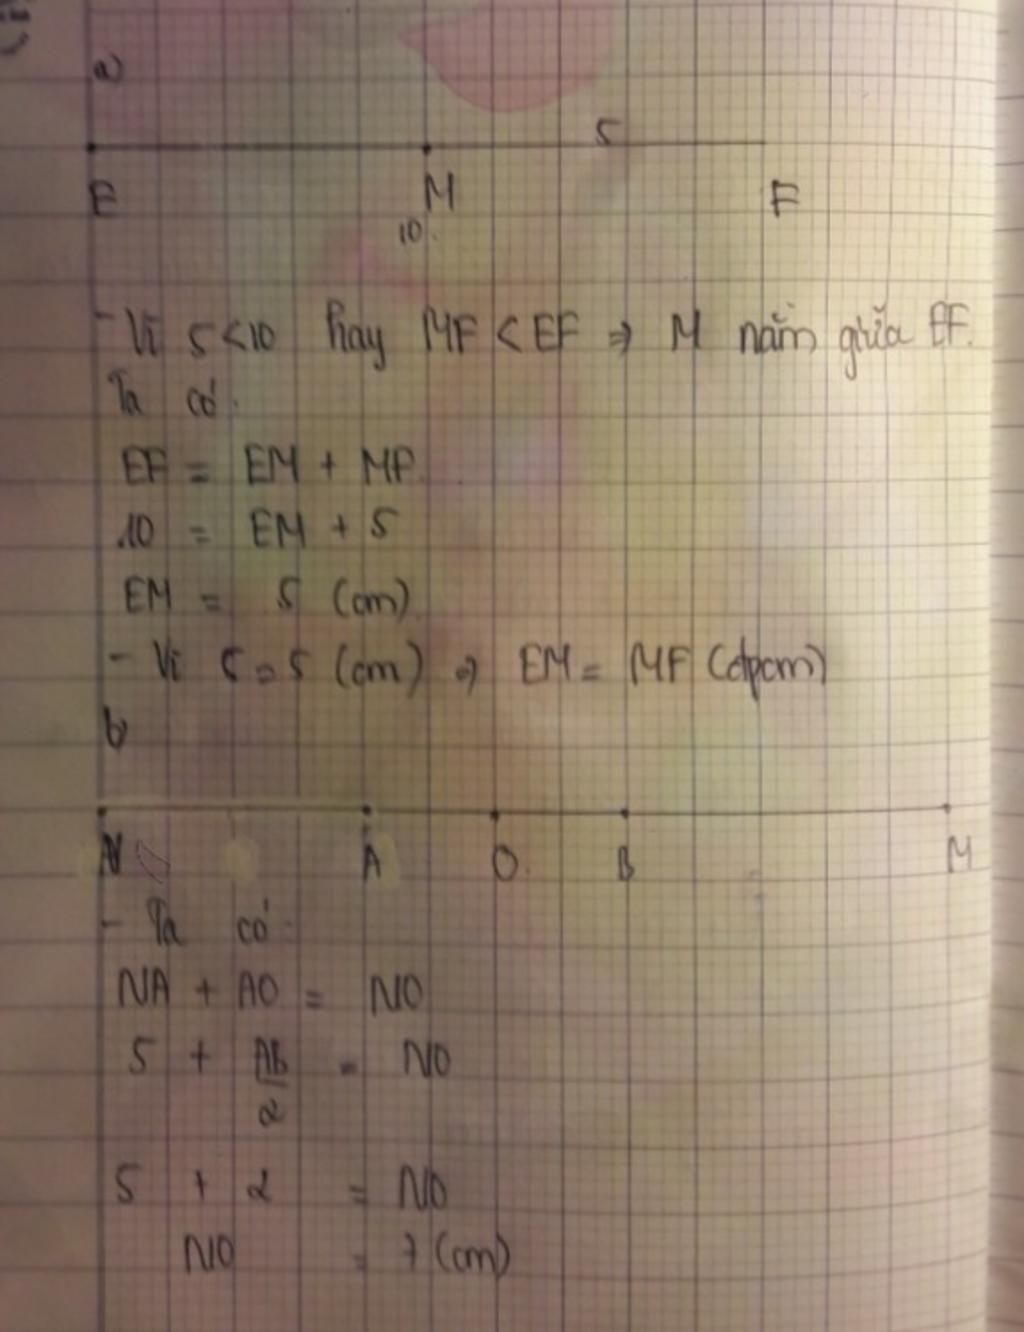 a)
5
E M F
10
- Vì 5 < 10 hay MF < EF => M nằm giữa EF.
Ta có:
EF = EM + MF
10 = EM + 5
EM = 5 (cm)
- Vì 5 = 5 (cm) => EM = MF (đpcm)
b)
N A O B M
- Ta có:
NA + AO = NO
5 + AB/2 = NO
5 + 2 = NO
NO = 7 (cm)